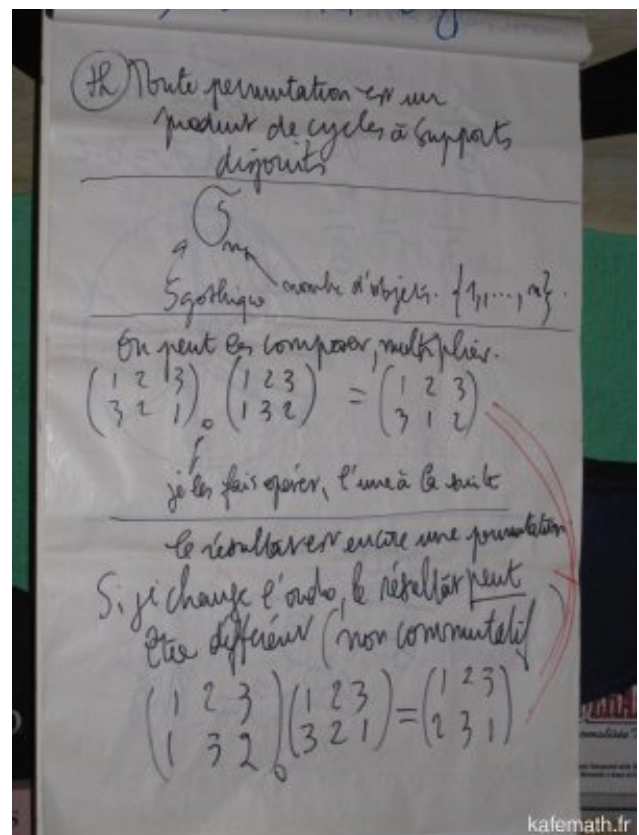 th Toute permutation est un
produit de cycles à supports
disjoints
S n
S gothique nombre d'objets. {1, ..., n}.
On peut les composer, multiplier.
(1 2 3) ∘ (1 2 3) = (1 2 3)
(3 2 1) (1 3 2) (3 1 2)
je les fais opérer, l'une à la suite
le résultat est encore une permutation
Si je change l'ordre, le résultat peut
être différent (non commutatif)
(1 2 3) ∘ (1 2 3) = (1 2 3)
(1 3 2) (3 2 1) (2 3 1)
kafemath.fr